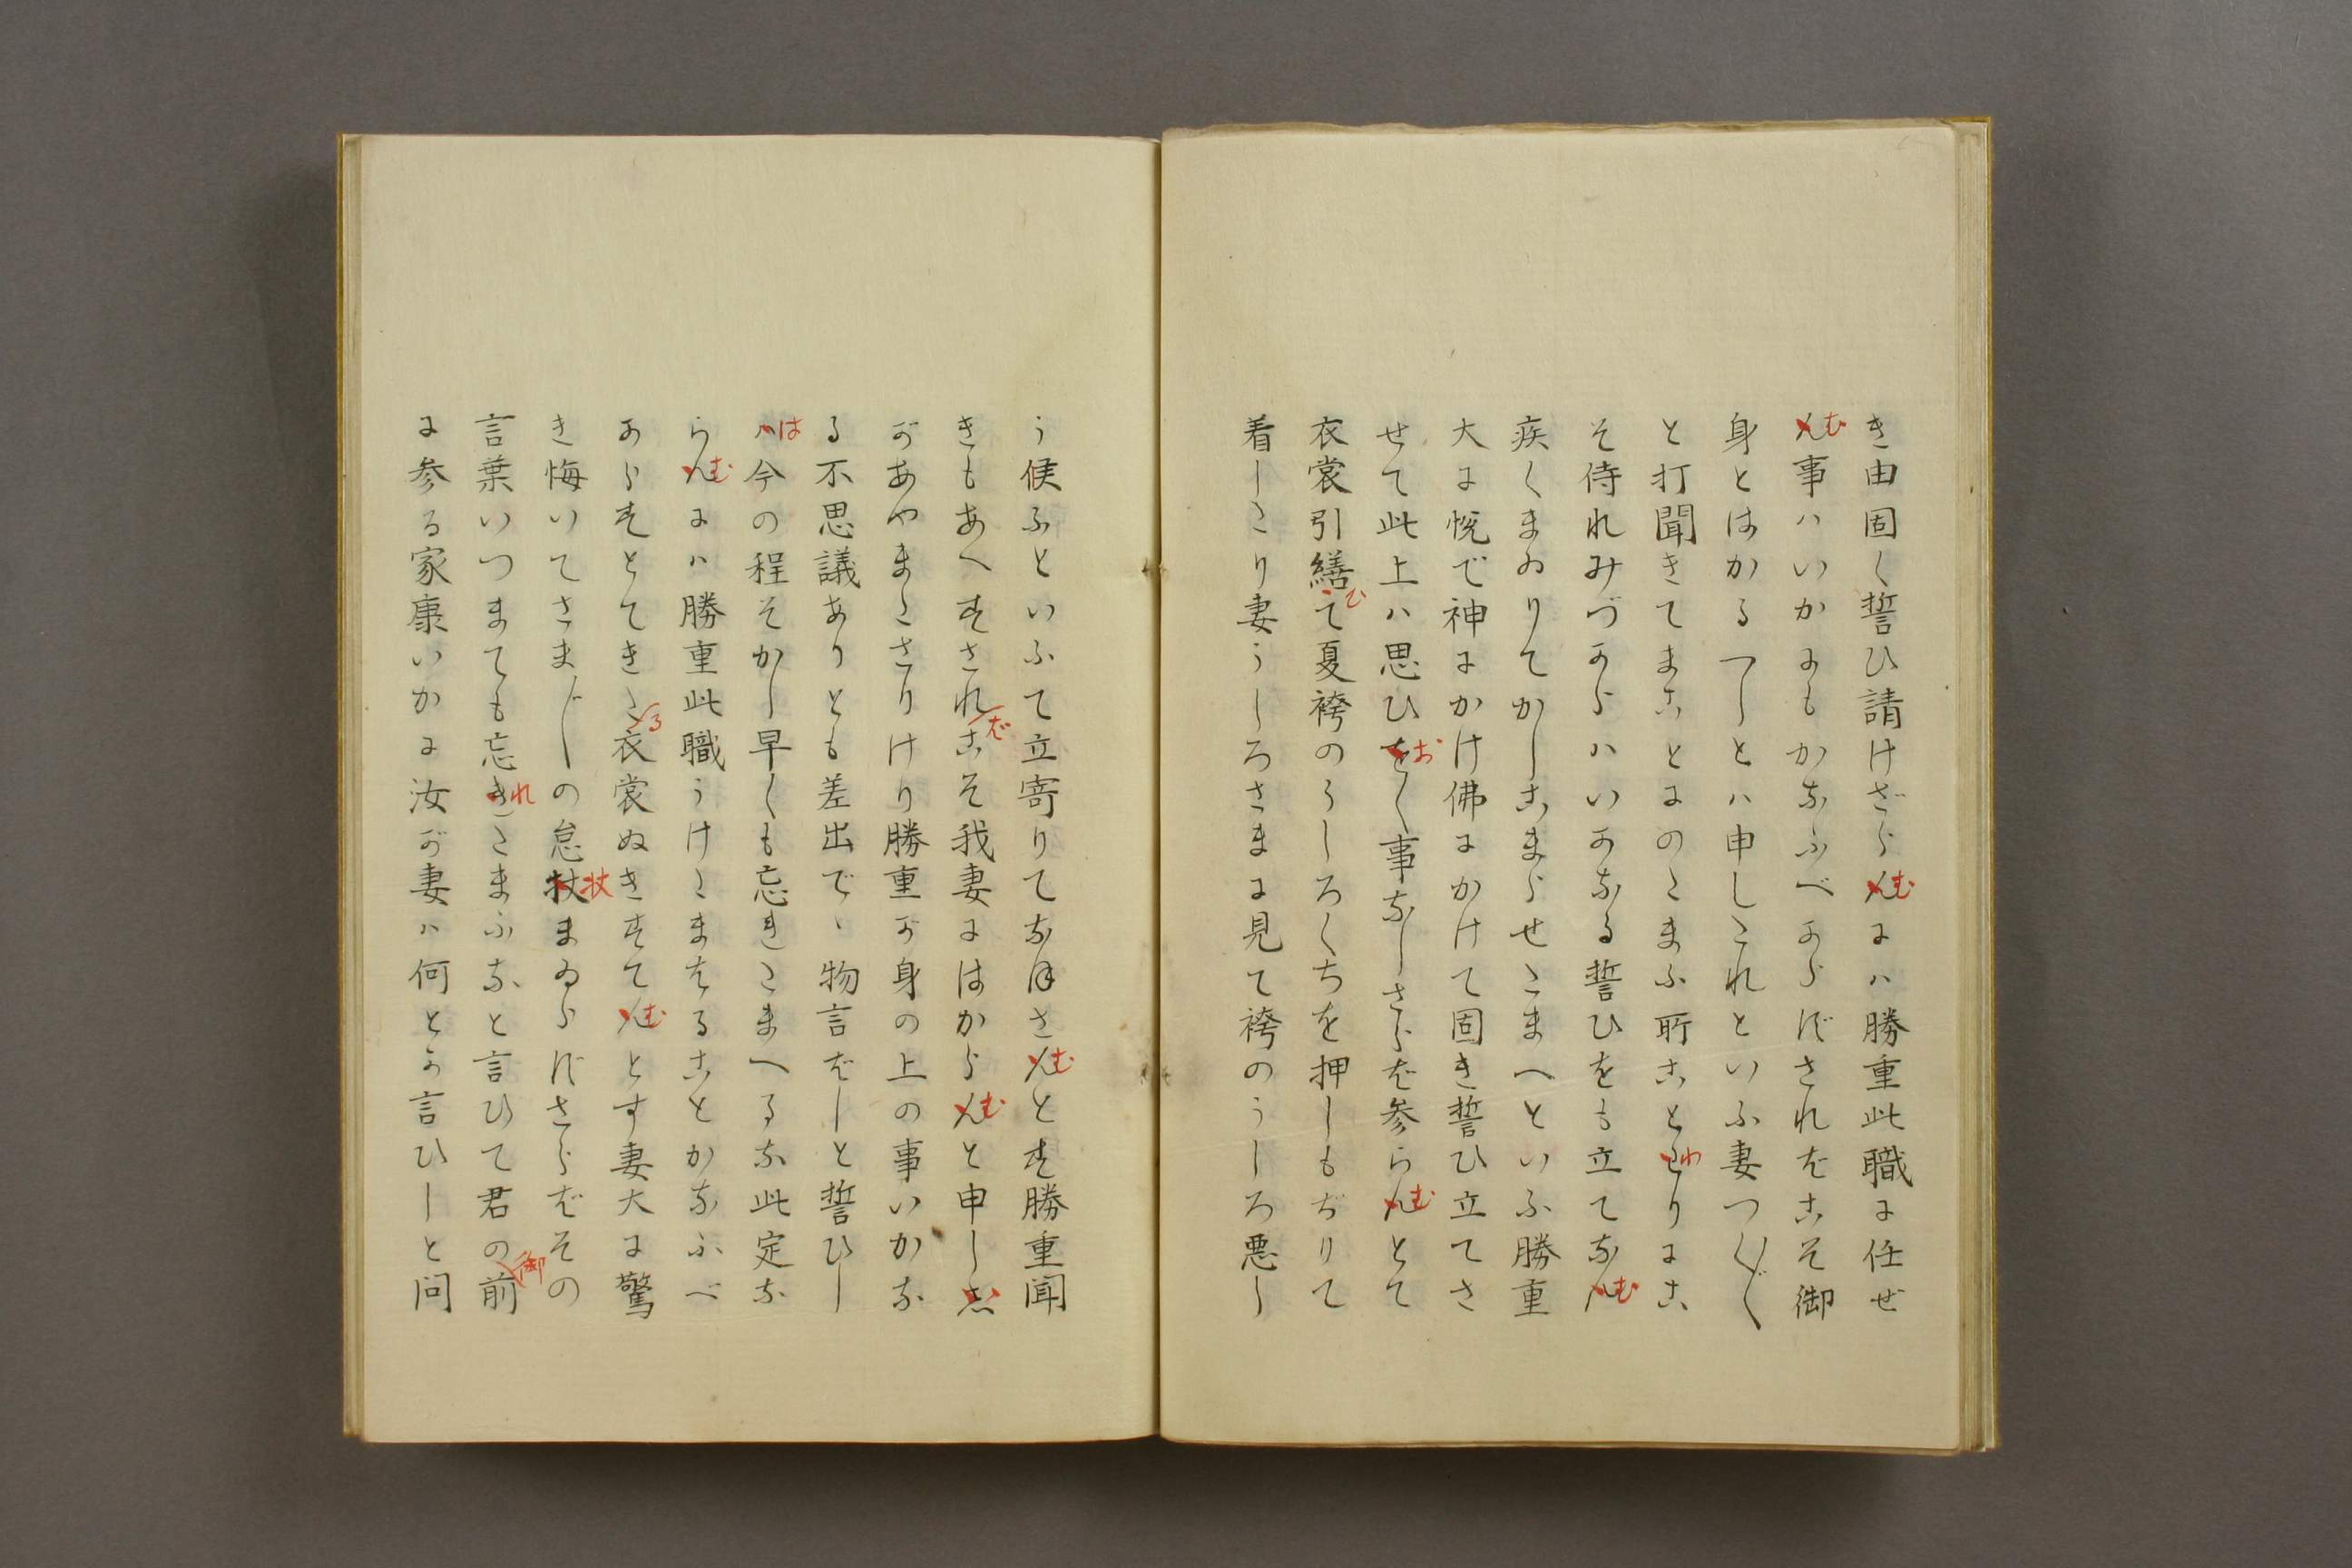 き由固く誓ひ請けざらむにハ勝重此職に任ぜ
む事ハいかにもかなふべからずされバこそ御
身とはかるべしとハ申したれといふ妻つく〴〵
と打聞きてまことにのたまふ所ことわりにこ
そ侍れみづからハいかなる誓ひをも立てなむ
疾くまゐりてかしこまらせたまへといふ勝重
大に悦で神にかけ佛にかけて固き誓ひ立てさ
せて此上ハ思ひおく事なしさらば参らむとて
衣裳引繕ひて夏袴のうしろくちを押しもぢりて
着したり妻うしろさまに見て袴のうしろ悪し
う候ふといふて立寄りてなほさむとす勝重聞
きもあへすさればこそ我妻にはからむと申し
があやまたさりけり勝重が身の上の事いかな
る不思議ありとも差出でゝ物言ばしと誓ひし
は今の程そかし早くも忘きたまへるな此定な
らむにハ勝重此職うけたまはることかなふべ
からすとてきたる衣裳ぬきすてむとす妻大に驚
き悔いてさま〴〵の怠状まゐらずさらばその
言葉いつまても忘れたまふなと言ひて君の御前
に参る家康いかに汝が妻ハ何とか言ひしと問